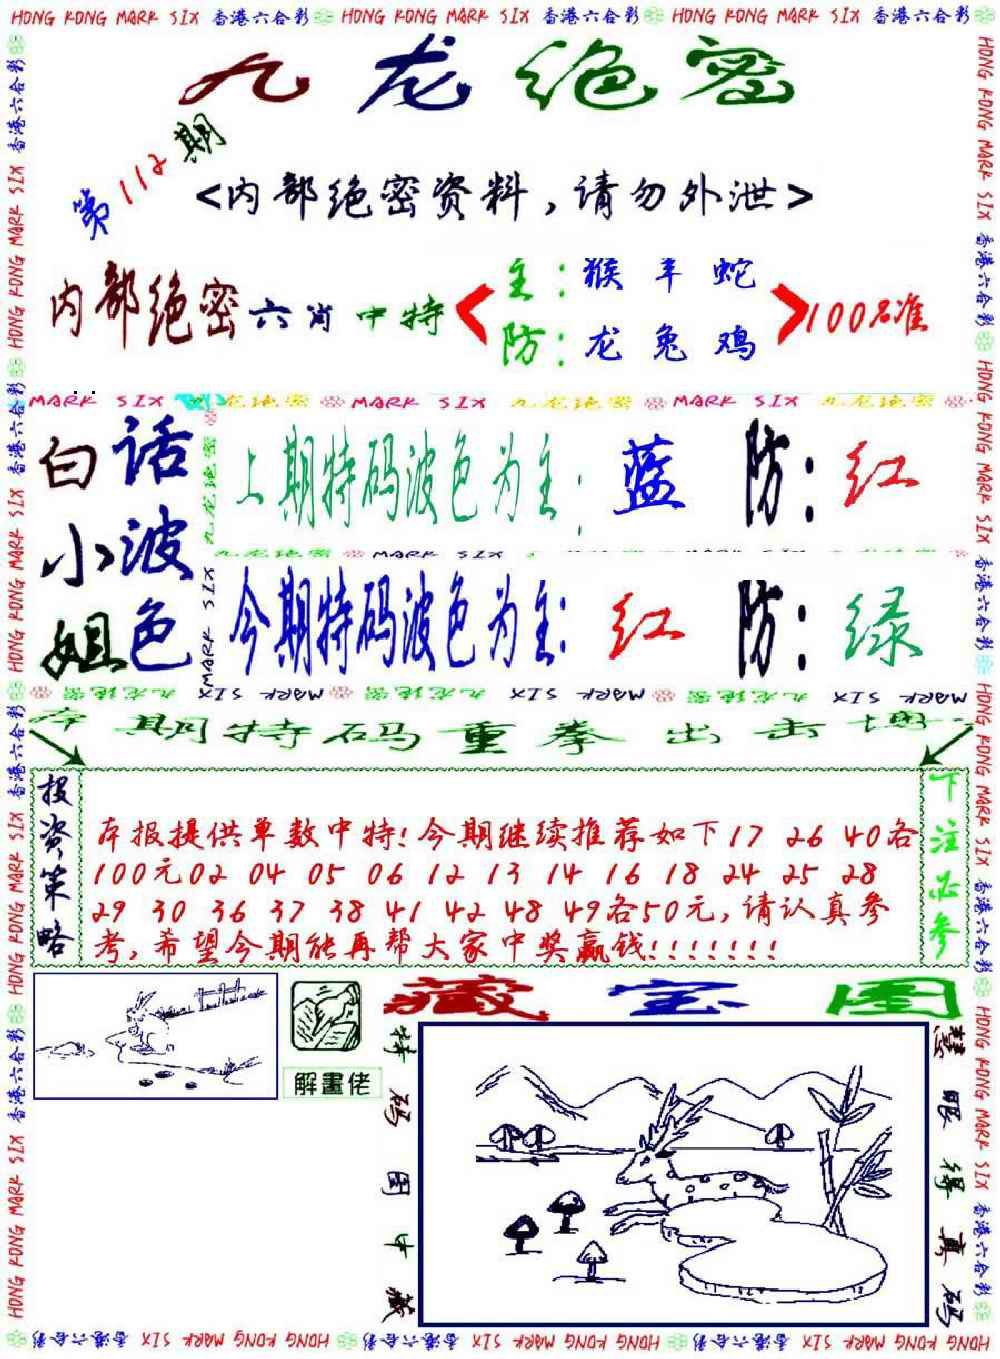 HONG KONG MARK SIX 香港六合彩 HONG KONG MARK SIX 香港六合彩 HONG KONG MARK SIX 香港六合彩
九龙绝密
第112期
<内部绝密资料，请勿外泄>
内部绝密六肖中特
主：猴 羊 蛇
防：龙 兔 鸡
100%准
MARK SIX 九龙绝密 MARK SIX 九龙绝密 MARK SIX 九龙绝密
白小姐
话波色
上期特码波色为主：蓝 防：红
九龙绝密 MARK SIX
今期特码波色为主：红 防：绿
MARK SIX 九龙绝密 MARK SIX 九龙绝密 MARK SIX 九龙绝密 MARK SIX
本期特码重拳出击
投资策略
本报提供单数中特！今期继续推荐如下17 26 40各
100元02 04 05 06 12 13 14 16 18 24 25 28
29 30 36 37 38 41 42 48 49各50元，请认真参
考，希望今期能再帮大家中奖赢钱！！！！！！！
下注必参
解畫佬
藏宝图
特码图中藏
慧眼得真码
HONG KONG MARK SIX 香港六合彩 HONG KONG MARK SIX 香港六合彩 HONG KONG MARK SIX 香港六合彩